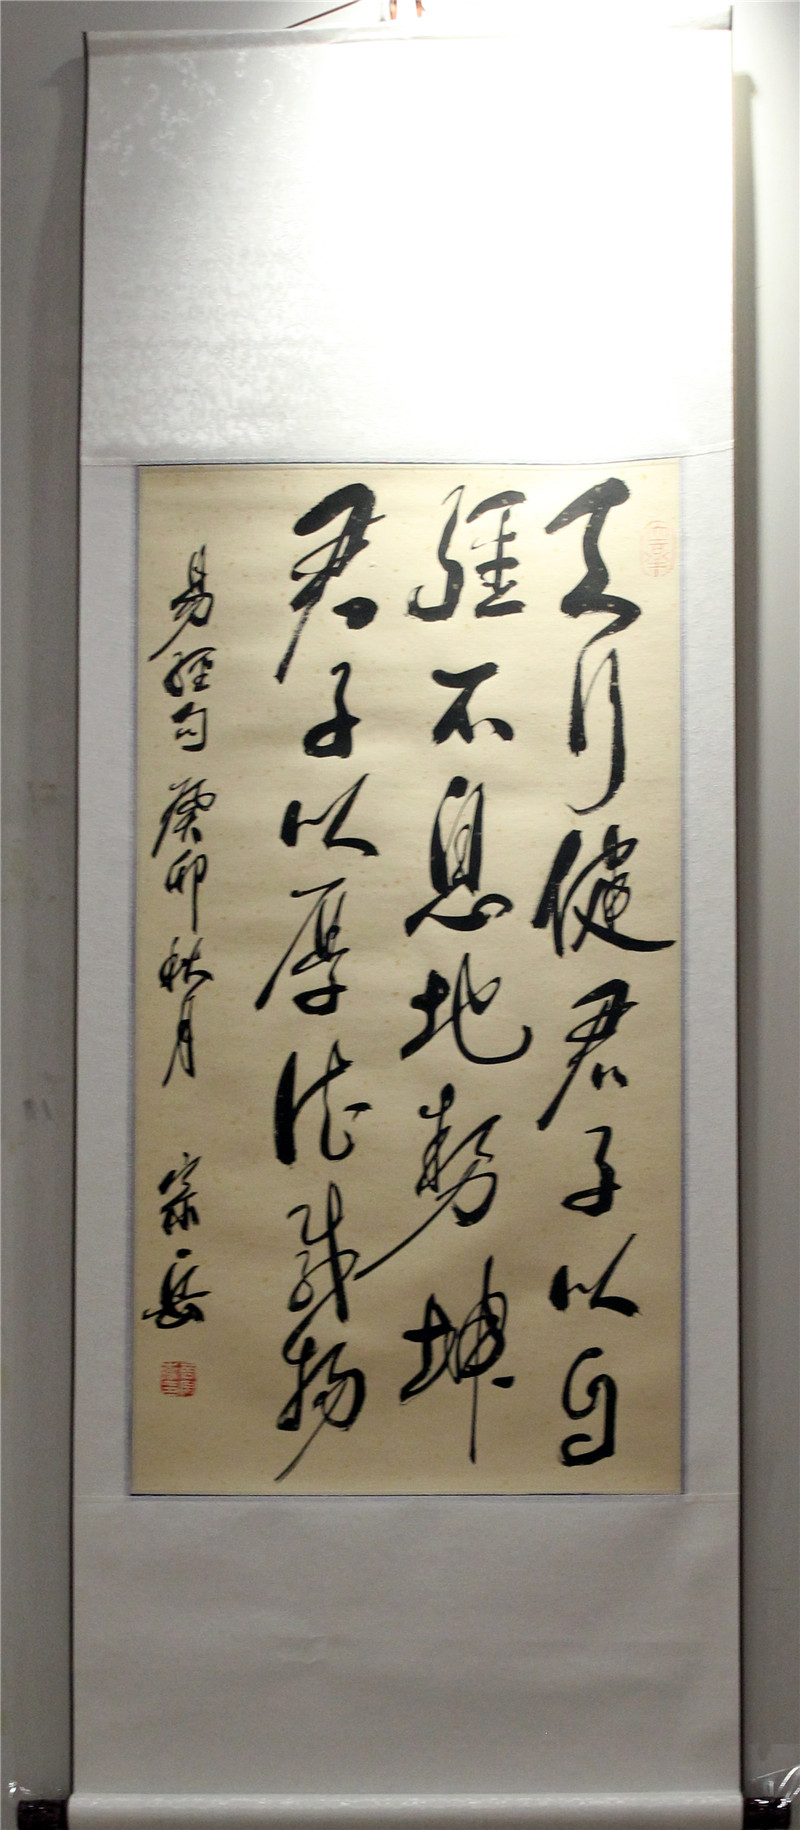 天行健君子以自
强不息地势坤
君子以厚德载物
易经句癸卯秋月 宗岳